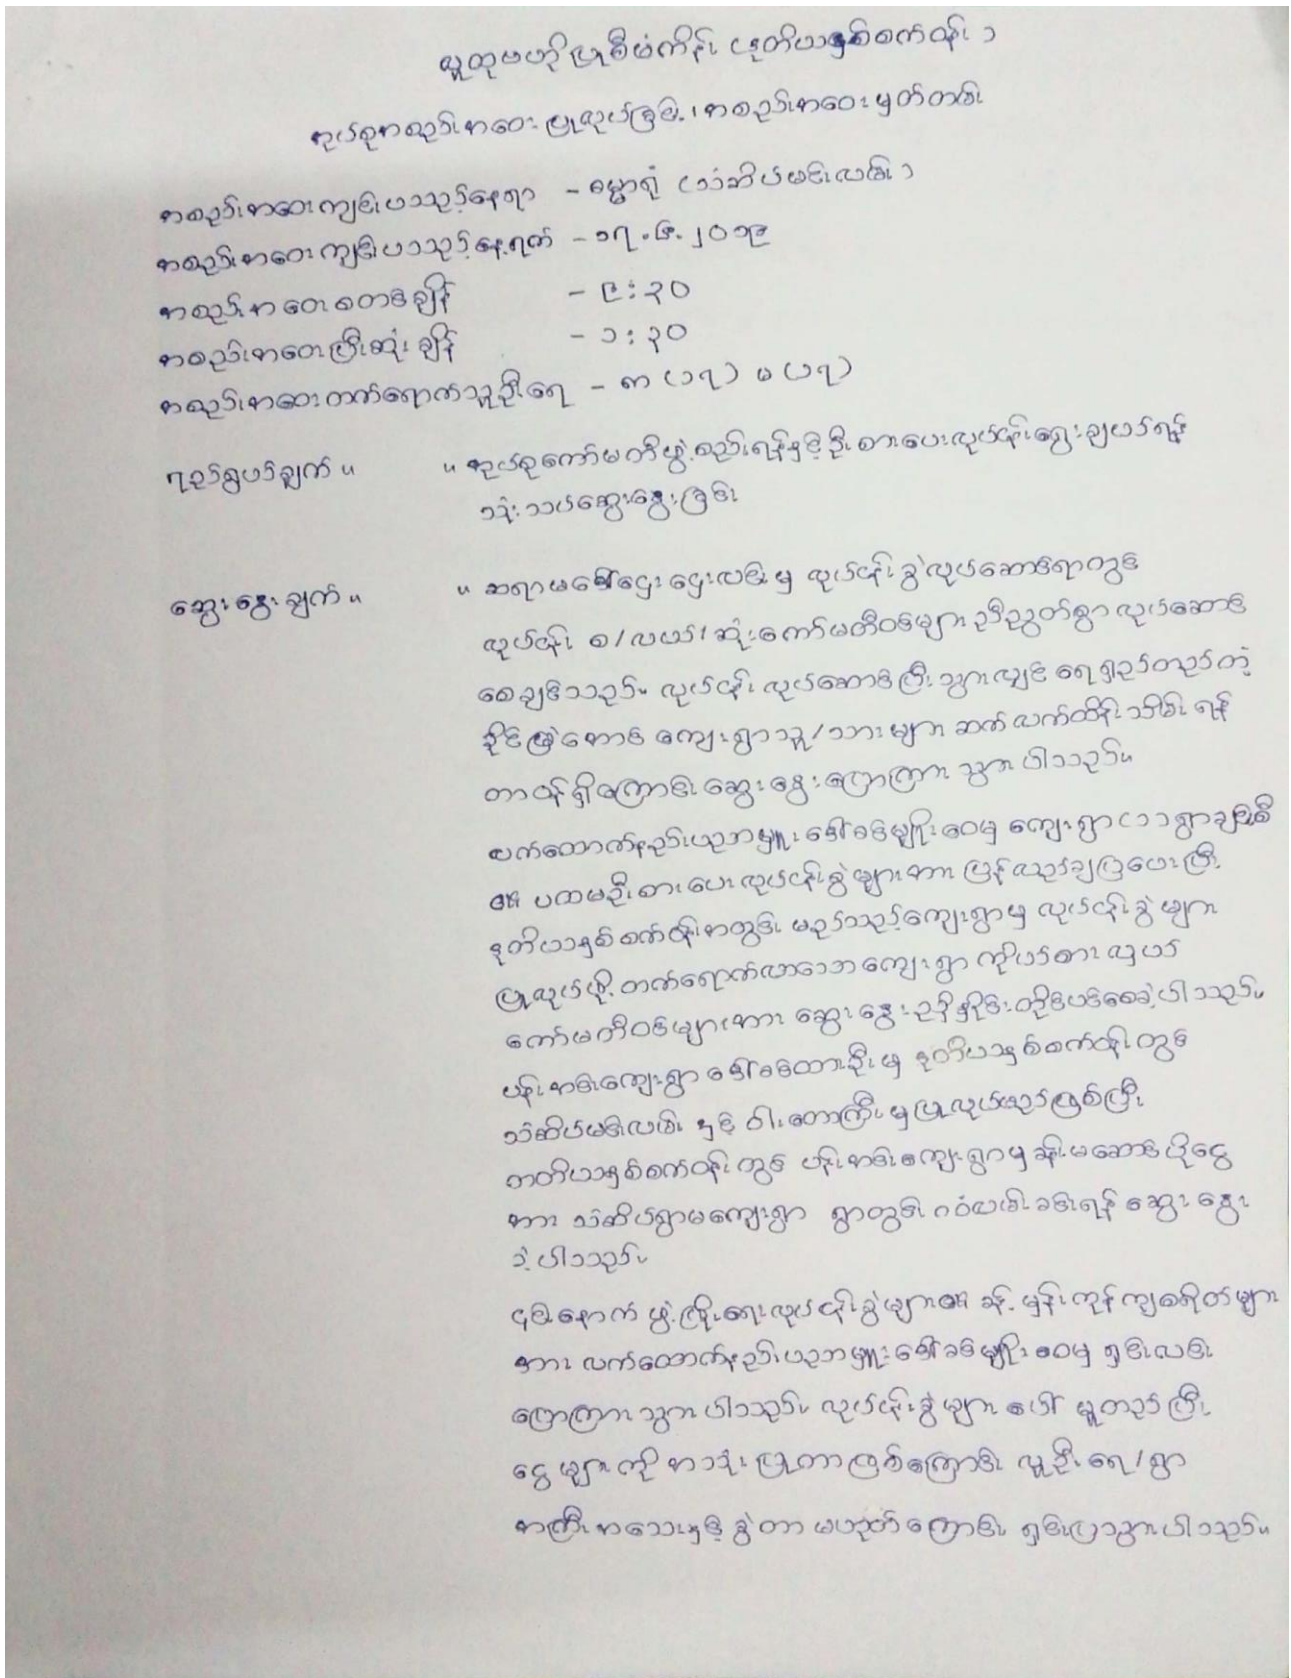 လူထုဗဟိုပြုစီမံကိန်း (ဒုတိယနှစ်စက်ဝန်း)
အုပ်စုအစည်းအဝေး ပြုလုပ်ခြင်း၊ အစည်းအဝေးမှတ်တမ်း
အစည်းအဝေးကျင်းပသည့်နေရာ - ဓမ္မာရုံ (သံဆိပ်မင်းလမ်း)
အစည်းအဝေးကျင်းပသည့်နေ့ရက် - ၁၇.၆.၂၀၁၉
အစည်းအဝေးစတင်ချိန် - ၉:၃၀
အစည်းအဝေးပြီးဆုံးချိန် - ၁:၃၀
အစည်းအဝေးတက်ရောက်သူဦးရေ - ကျာ (၁၇) မ (၁၇)
ရည်ရွယ်ချက်။ ။ အုပ်စုကော်မတီဖွဲ့စည်းရန်နှင့်ဦးစားပေးလုပ်ငန်းရွေးချယ်ရန်
သုံးသပ်ဆွေးနွေးခြင်း
ဆွေးနွေးချက်။ ။ ဆရာမဒေါ်ဌေးဌေးလင်းမှ လုပ်ငန်းခွဲလုပ်ဆောင်ရာတွင်
လုပ်ငန်း စ/လယ်/ဆုံးကော်မတီဝင်များညီညွတ်စွာလုပ်ဆောင်
စေချင်သည်။ လုပ်ငန်းလုပ်ဆောင်ပြီးသွားလျှင် ရေရှည်တည်တံ့
ခိုင်မြဲအောင် ကျေးရွာသူ/သားများ ဆက်လက်ထိန်းသိမ်းရန်
တာဝန်ရှိကြောင်း ဆွေးနွေးပြောကြားသွားပါသည်။
လက်ထောက်နည်းပညာမှူးဒေါ်ခင်မျိုးဝေမှ ကျေးရွာ (၁၁)ရွာချင်းစီ
၏ ပထမဦးစားပေးလုပ်ငန်းခွဲများအား ပြန်လည်ချပြပေးပြီး
ဒုတိယနှစ်စက်ဝန်းအတွင်း မည်သည့်ကျေးရွာမှ လုပ်ငန်းခွဲများ
ပြုလုပ်ဖို့ တက်ရောက်လာသောကျေးရွာ ကိုယ်စားလှယ်
ကော်မတီဝင်များအား ဆွေးနွေးညှိနှိုင်းတိုင်ပင်စေခဲ့ပါသည်။
ပန်းအင်းကျေးရွာ ဒေါ်ခင်ထားဦးမှ ဒုတိယနှစ်စက်ဝန်းတွင်
သံဆိပ်မင်းလမ်း နှင့် ဝါးတောကြီးမှပြုလုပ်မည်ဖြစ်ပြီး
တတိယနှစ်စက်ဝန်းတွင် ပန်းအင်းကျေးရွာမှ ခန်းမဆောင်ပိုငွေ
အား သံဆိပ်ရွာမကျေးရွာ ရွာတွင်းဂဝံလမ်းခင်းရန် ဆွေးနွေး
ခဲ့ပါသည်။
၎င်းနောက် ဖွံ့ဖြိုးရေးလုပ်ငန်းခွဲများ၏ ခန့်မှန်းကုန်ကျစရိတ်များ
အား လက်ထောက်နည်းပညာမှူးဒေါ်ခင်မျိုးဝေမှ ရှင်းလင်း
ပြောကြားသွားပါသည်။ လုပ်ငန်းခွဲများပေါ် မူတည်ပြီး
ငွေများကို အသုံးပြုတာဖြစ်ကြောင်း လူဦးရေ/ရွာ
အကြီးအသေးနှင့်ခွဲတာ မဟုတ်ကြောင်း ရှင်းပြသွားပါသည်။